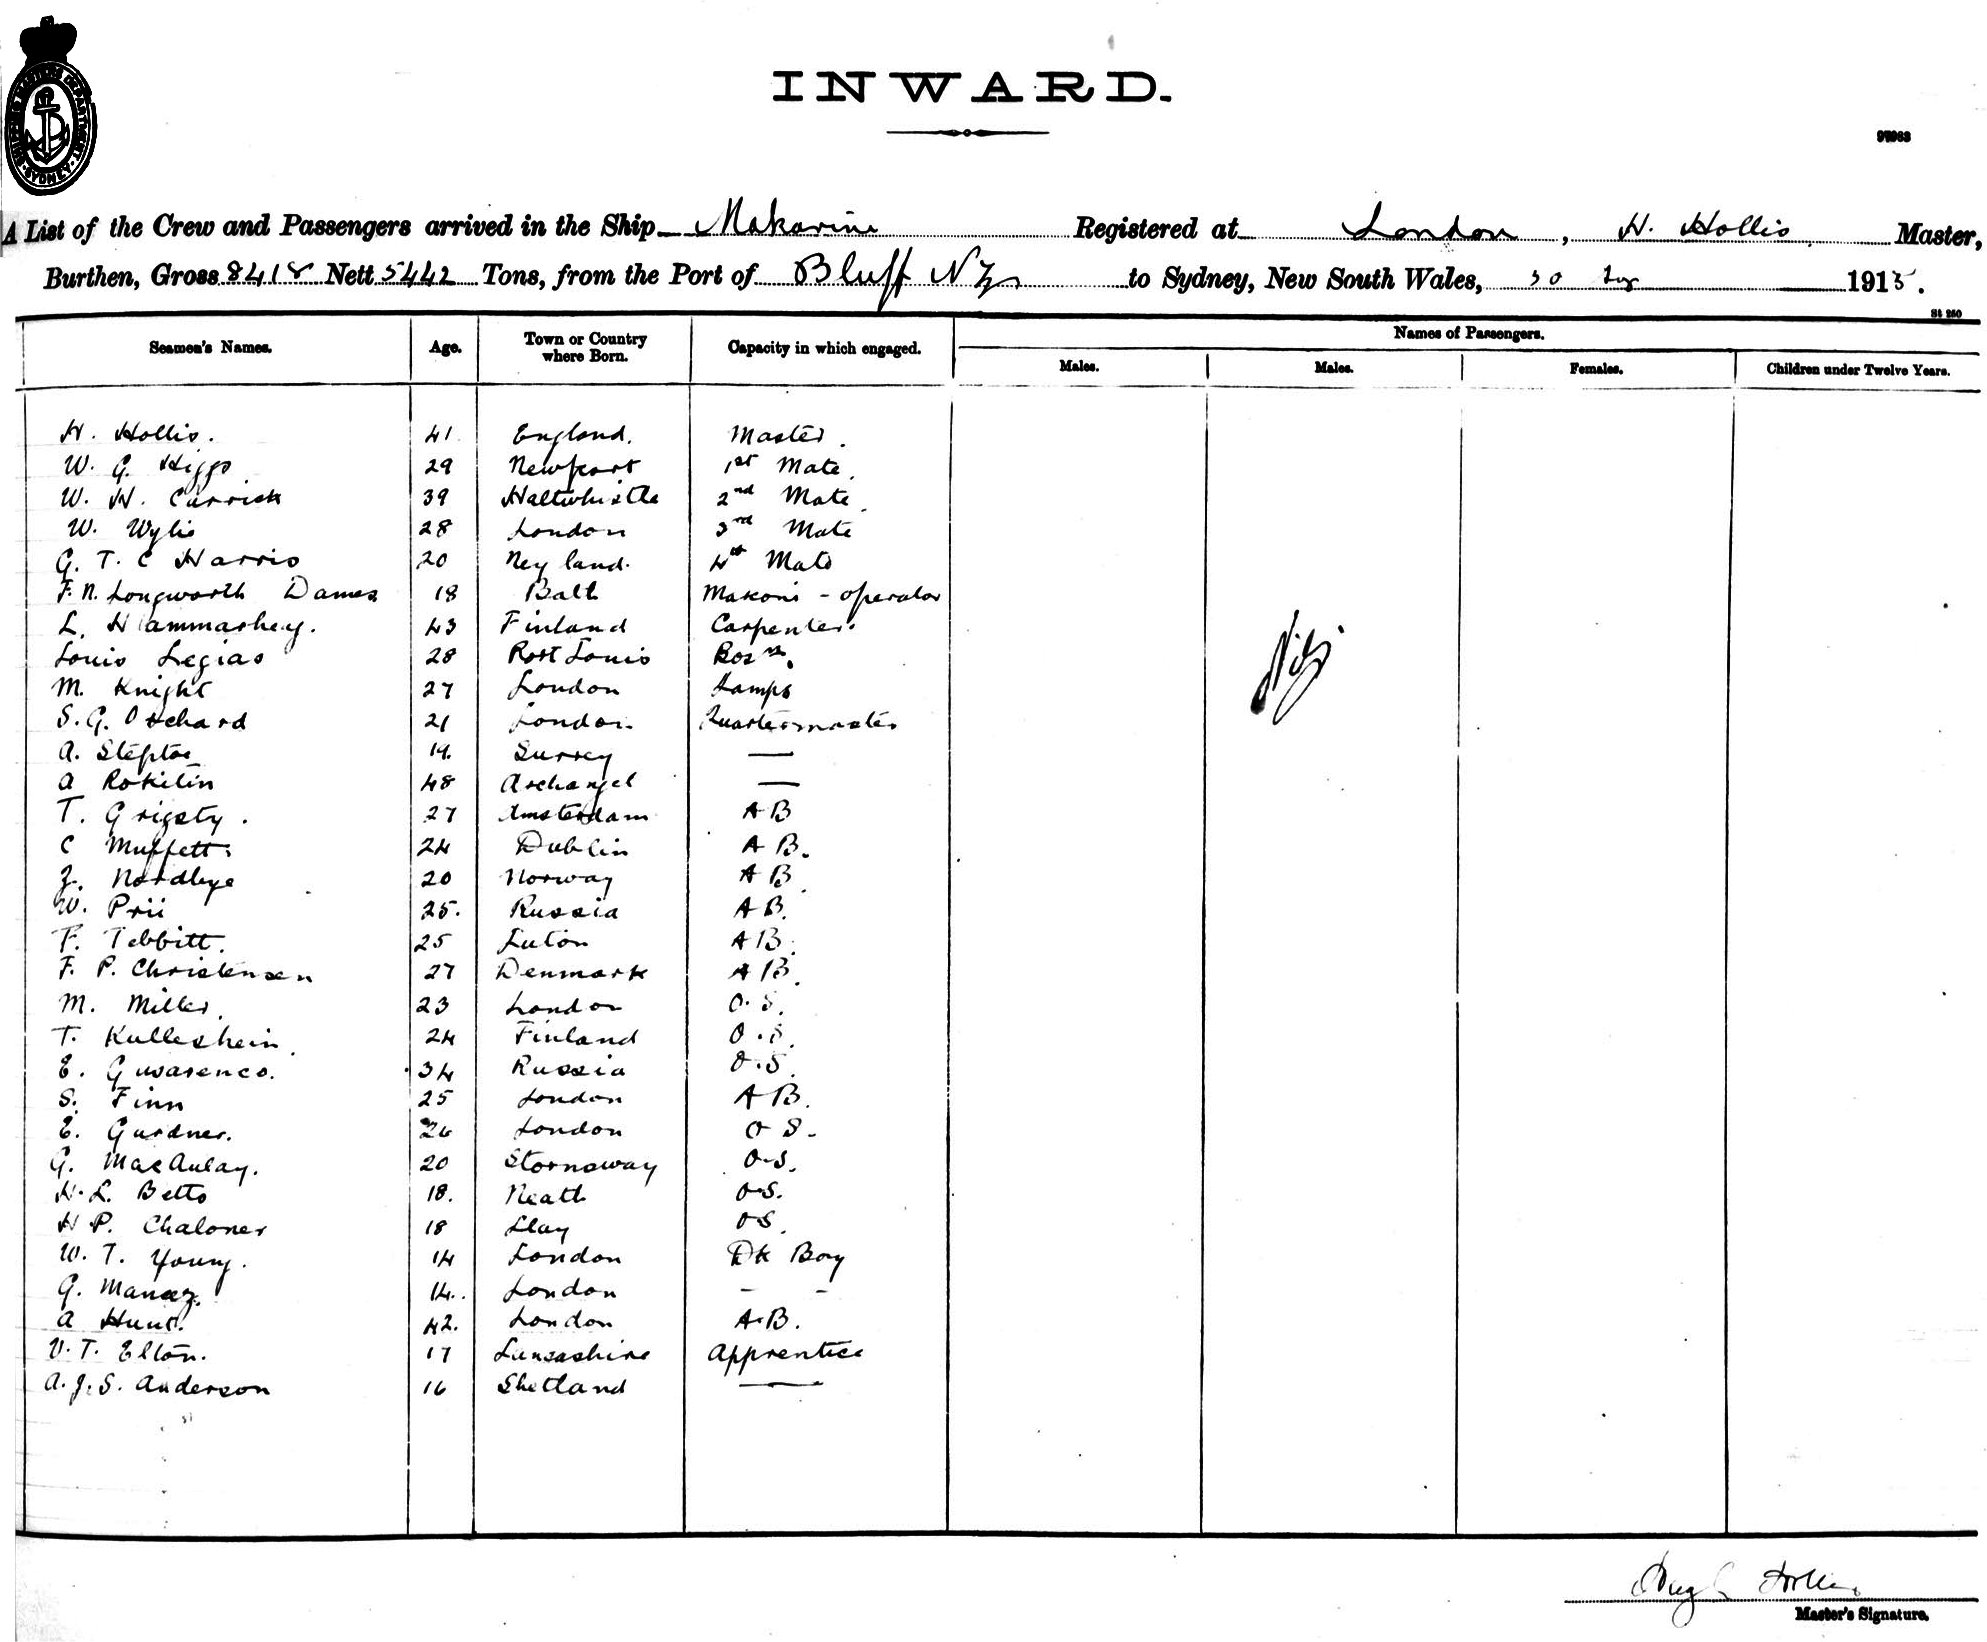 SHIPPING MASTERS DEPARTMENT SYDNEY
INWARD.
A List of the Crew and Passengers arrived in the Ship Makarini Registered at London, H. Hollis Master,
Burthen, Gross 8418 Nett 5442 Tons, from the Port of Bluff NZ to Sydney, New South Wales, 30 1915.
St 250
Seamen's Names. Age. Town or Country where Born. Capacity in which engaged. Names of Passengers.
Males. Males. Females. Children under Twelve Years.
H. Hollis. 41 England. Master.
W. G. Higgs 29 Newport 1st Mate.
W. H. Carrick 39 Haltwhistle 2nd Mate.
W. Wylie 28 London 3rd Mate
G. T. C Harris 20 Neyland. 4th Mate
F. N. Longworth Dames 18 Bath Makoni - operator
L. Hammashey. 43 Finland Carpenter.
Louis Legias 28 Port Louis Bosn.
M. Knight 27 London Lamps
S. G. Orchard 21 London Quartermaster
A. Steptoe 19. Surrey —
A Rokitin 48 Archangel —
T. Grigsty. 27 Amsterdam AB
C Muffett 24 Dublin AB.
Z. Nordbye 20 Norway AB.
W. Prii 25. Russia AB.
F. Tebbitt. 25 Luton AB.
F. P. Christensen 27 Denmark AB.
M. Miller. 23 London O.S.
T. Kulleshein. 24 Finland O.S.
E. Gusarenco. 34 Russia O.S.
S. Finn 25 London AB.
E. Gardner. 26 London OS.
G. MacAulay. 20 Stornoway O.S.
H. L. Betts 18. Neath O.S.
H P. Chaloner 18 Llay OS.
W. T. Young. 14 London Dk Boy
G. 14. London - -
A Hunt. 42. London A.B.
V. T. Elton. 17 Lancashire Apprentice
A. J. S. Anderson 16 Shetland —
Nil.
Hugh Hollis
Master's Signature.